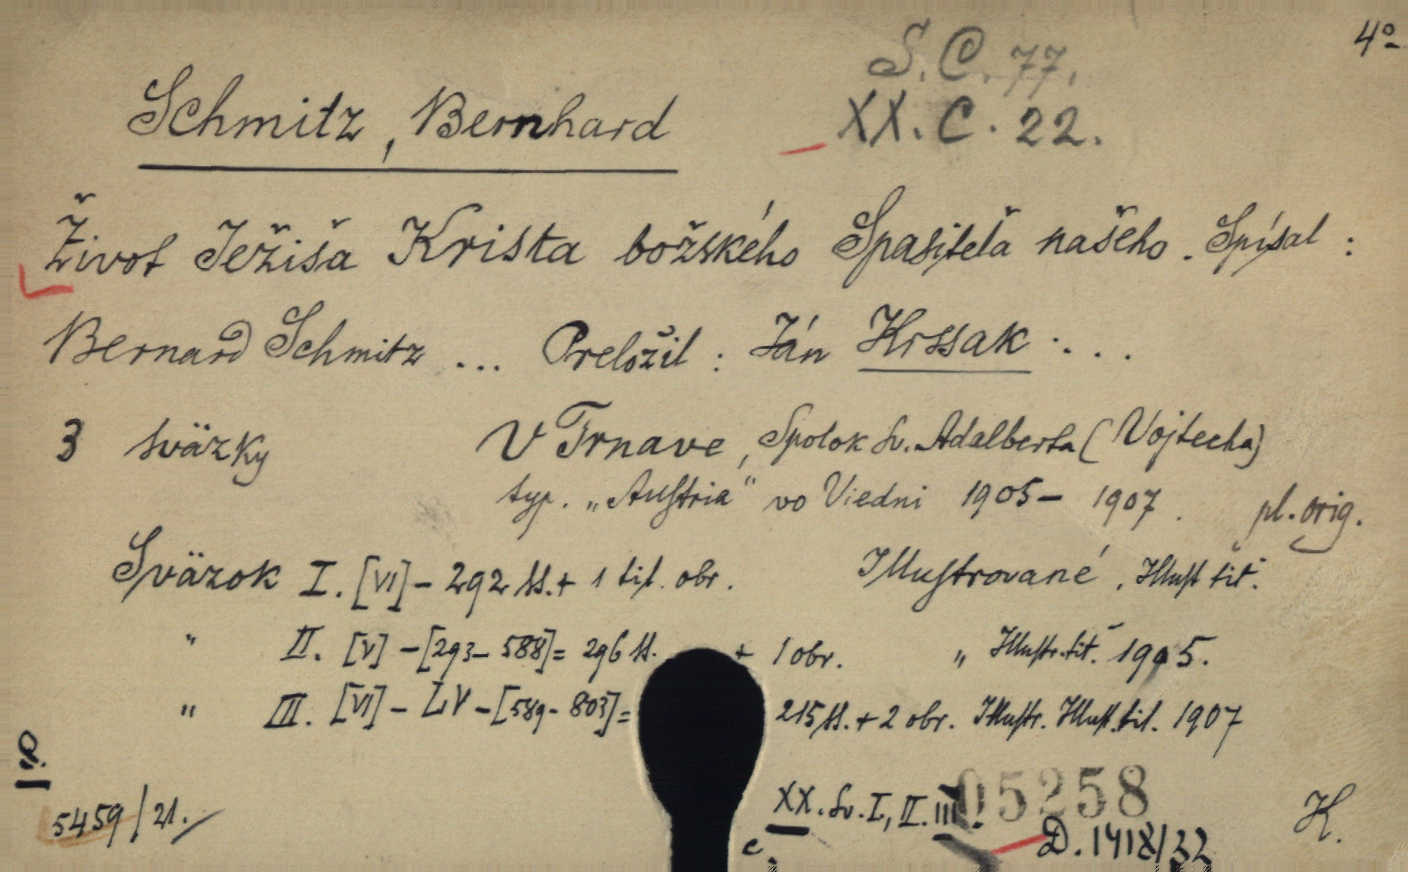 4º
S.C. 77.
Schmitz, Bernhard
XX. C. 22.
Život Ježiša Krista božského Spasiteľa našeho. Spísal :
Bernard Schmitz ... Preložil : Ján Krssak ....
3 sväzky V Trnave, Spolok sv. Adalberta (Vojtecha)
typ. „Austria" vo Viedni 1905 – 1907. pl. orig.
Sväzok I. [VI] – 292 ss. + 1 tit. obr. Illustrované, Illust tit.
" II. [V] – [293 – 588] = 296 ss. + 1 obr. „ Illustr. tit. 1905.
" III. [VI] – LV – [589 – 803] = 215 ss. + 2 obr. Illustr. Illust. tit. 1907
5459/21.
XX. Sv. I, II. III.
05258
K.
c.
D. 1418/33